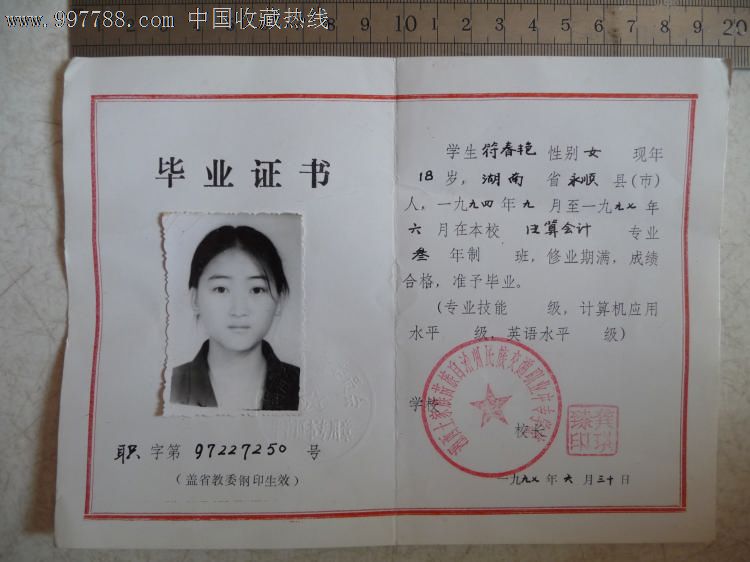 www.997788.com 中国收藏热线
1 2 3 4 5 6 7 8 9 10 1 2 3 4 5 6 7 8 9 20
毕业证书
职 字第 97227250 号
(盖省教委钢印生效)
学生 符春艳 性别 女 现年
18 岁, 湖南 省 永顺 县(市)
人,一九九四年九月至一九九七年
六 月在本校 会计 专业
叁 年制 班,修业期满,成绩
合格,准予毕业。
(专业技能 级,计算机应用
水平 级,英语水平 级)
学校
校长
一九九七年六月三十日